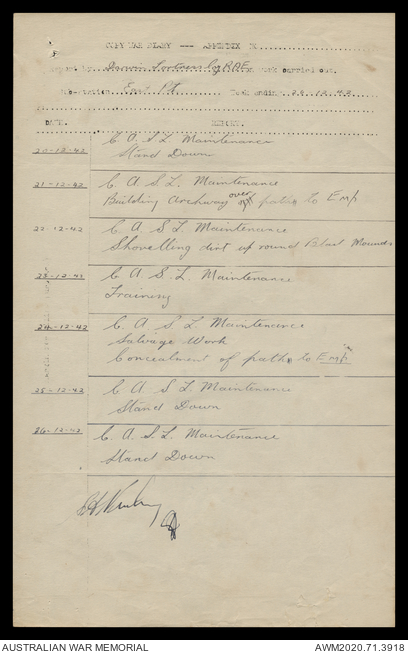 COPY WAR DIARY --- APPENDIX
Report by Darwin Fortress Coy RAE on work carried out.
Sub-station East Pt Week ending 26.12.42
DATE. REPORT.
20-12-42 C A S L Maintenance
Stand Down
21-12-42 C. A S L. Maintenance
Building Archway over path to Emp
22-12-42 C. A S L Maintenance
Shovelling dirt up round Blast Mounds
23-12-42 C A S L Maintenance
Training
24-12-42 C. A S L Maintenance
Salvage Work
Concealment of path to Emp
25-12-42 C. A S L Maintenance
Stand Down
26-12-42 C. A. S. L. Maintenance
Stand Down
AUSTRALIAN WAR MEMORIAL
AWM2020.71.3918